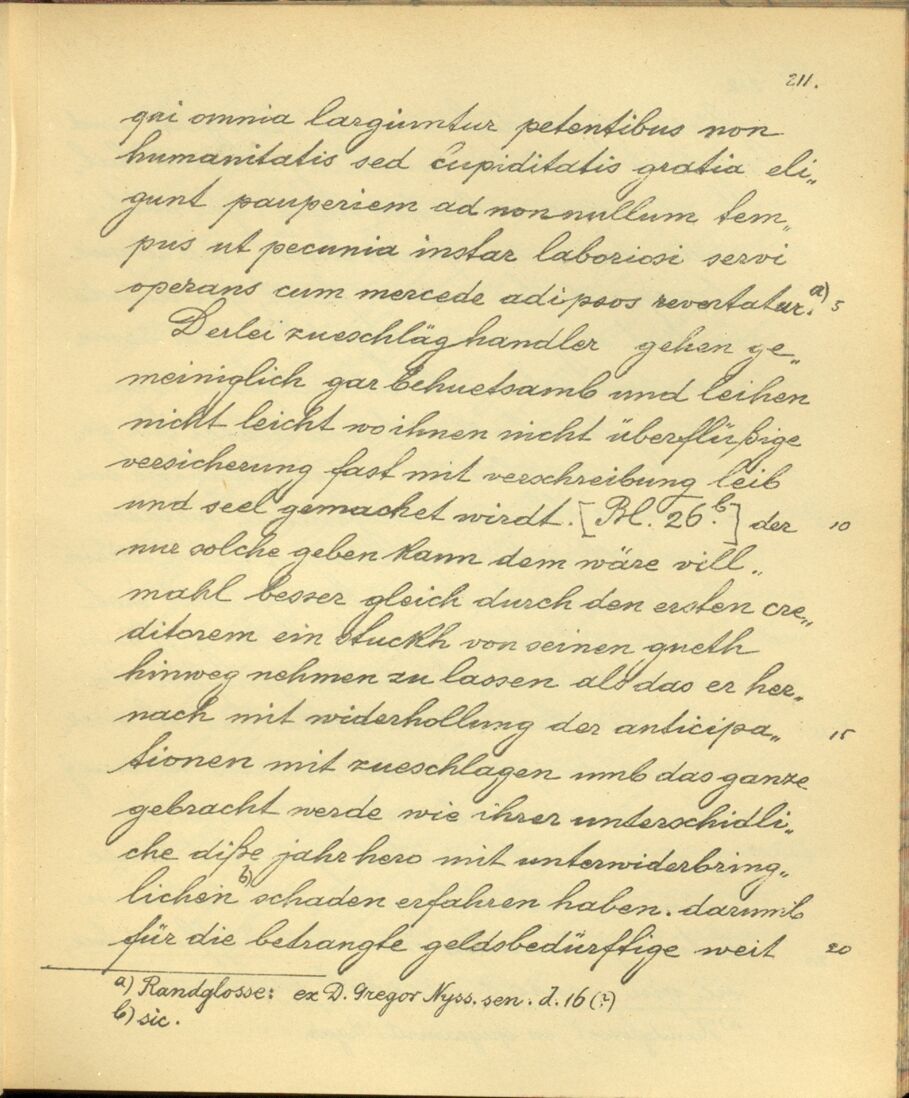 211.
qui omnia largiuntur petentibus non
humanitatis sed cupiditatis gratia eli„
gunt pauperiem ad nonnullum tem„
pus ut pecunia instar laboriosi servi
operans cum mercede adipsos revertatur.a) 5
Derlei zueschläghandler gehen ge„
meiniglich gar behuetsamb und leihen
nicht leicht wo ihnen nicht überflüßige
versicherung fast mit verschreibung leib
und seel gemachet wirdt. [Bl. 26b.] der 10
nur solche geben kann dem wäre vill„
mahl besser gleich durch den ersten cre„
ditorem ein stuckh von seinen gueth
hinweg nehmen zu lassen als das er her„
nach mit widerhollung der anticipa„ 15
tionen mit zueschlagen umb das ganze
gebracht werde wie ihrer unterschidli„
che diße jahr hero mit unterwiderbring„
lichen b) schaden erfahren haben. darumb
für die betrangte geldsbedürfftige weit 20
a) Randglosse: ex D. Gregor Nyss. sen. d. 16 (?)
b) sic.